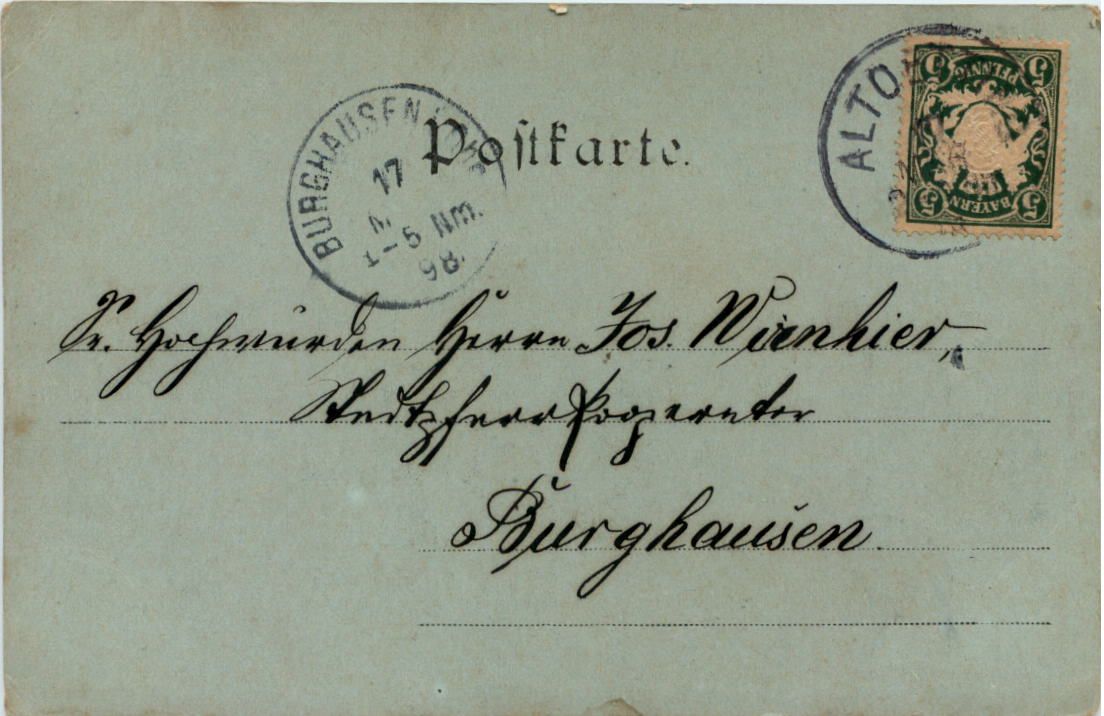 Postkarte.
BURGHAUSEN
17
1-5 Nm.
98.
ALTO
5 PFENNIG 5
5 BAYERN 5
Sr. Hochwürden Herrn Jos. Wienhier,
Stadtpfarrkooperator
Burghausen